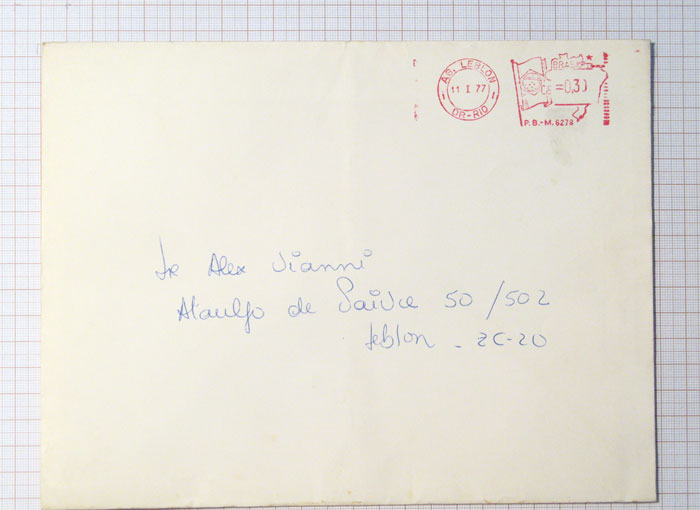 AG. LEBLON
11 I 77
DR-RIO
BRASIL
=0,30
P.B.-M.6278
Sr Alex Vianni
Ataulfo de Paiva 50 /502
Leblon - ZC-20